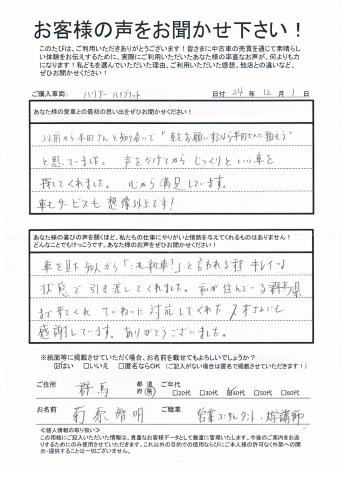 お客様の声をお聞かせ下さい!
このたびは、ご利用いただきありがとうございます!皆さまに中古車の売買を通じて素晴らし
い体験をお伝えするために、実際にご利用いただいたあなた様の率直なお声が、何よりも力
になります!私どもを選んでいただいた理由、ご利用いただいた感想、他店との違いなど、
ぜひお聞かせください!
ご購入車両: ハリアー ハイブリット 日付 24 年 12 月 1 日
あなた様の愛車との最初の思い出をぜひお聞かせください!
以前から本田さんと知り合いで "車をお願いするなら本田さんに頼もう"
と思っていました。 声をかけてから じっくりと いい車を
探してくれました。 心から満足しています。
車もサービスも 想像以上です!
あなた様の喜びの声を聞くほど、私たちの仕事にやりがいと情熱を与えてくれるものはありません!
どんなことでもけっこうです。あなた様のお声をお聞かせください!
車を見た知人から「これ新車?」と言われる程 キレイな
状態で 引き渡してくれました。 私が住んでいる群馬県
まで来てくれ ていねいに 対応してくれた
感謝しています。 ありがとうございました。
※紙面等に掲載させていただく場合、お名前を載せてもよろしいでしょうか?
☑はい □いいえ □匿名ならOK (ご記入がない場合は匿名で掲載させていただきます!)
ご住所 群馬 都道府県 ご年代 □20代 □30代 ☑40代 □50代 □60代
お名前 ご職業 営業コンサルタント・研修講師
<個人情報の取り扱い>
この用紙にご記入いただいた情報は、貴重なお客様データとして厳重に管理いたします。今後のご案内をお送
りするためにのみ使用させていただきます。これ以外の目的での使用ならびにご本人様の許可なく外部への開
示・提供することは一切ございません。